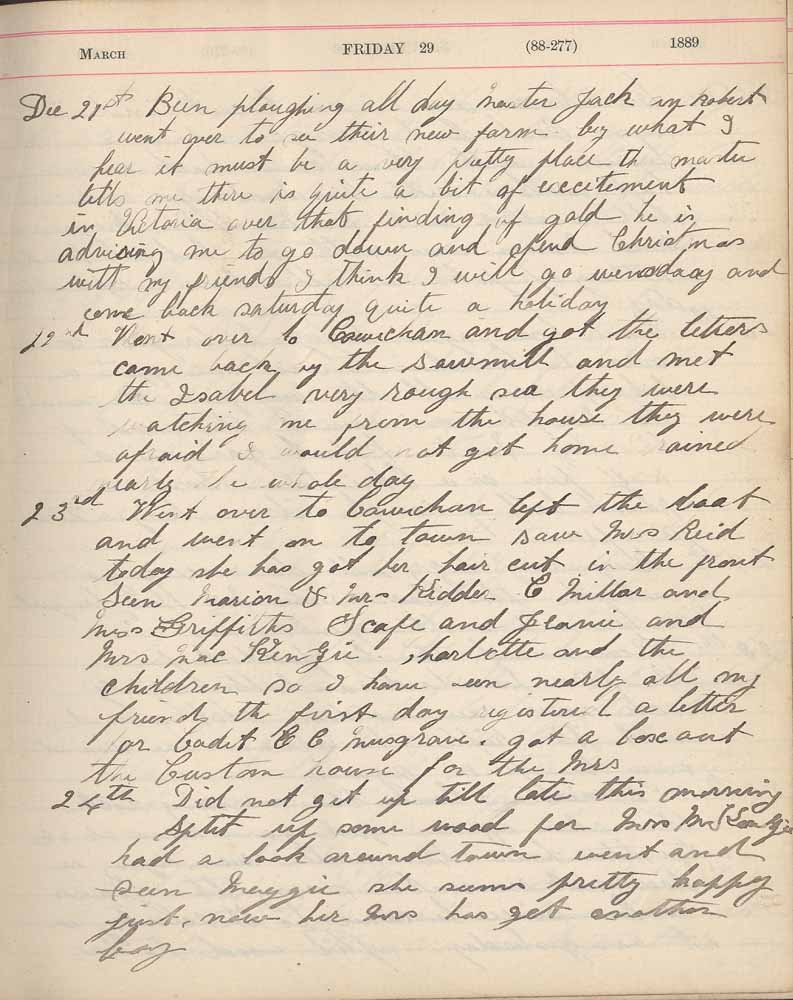 March FRIDAY 29 (88-277) 1889
Dec 21st Been ploughing all day master Jack Robert
went over to see their new farm by what I
hear it must be a very pretty place th master
tells me there is quite a bit of excitement
in Victoria over that finding of gold he is
advising me to go down and spend Christmas
with my friends I think I will go wensdaay and
come back saturday quite a holiday
Went over to Cowichan and got the letters
came back by the sawmill and met
the Isabel very rough sea they were
watching me from the house they were
afraid I would not get home rained
nearly the whole day
23rd Went over to Cowichan left the boat
and went on to town saw Mrs Reid
today she has got her hair cut in the front
Seen Marion & Mrs Kidder C Millar and
Miss Griffiths Scafe and Jeanie and
Mrs Mac KenZie Charlotte and the
children so I have seen nearly all my
friends th first day registered a letter
for Cadet C C Musgrave. got a box out
the Custom house for the Mrs
24th Did not get up till late this morning
Split up some wood for Mrs
had a look around town went and
seen Maggie she seems pretty happy
just now her Mrs has get another
boy